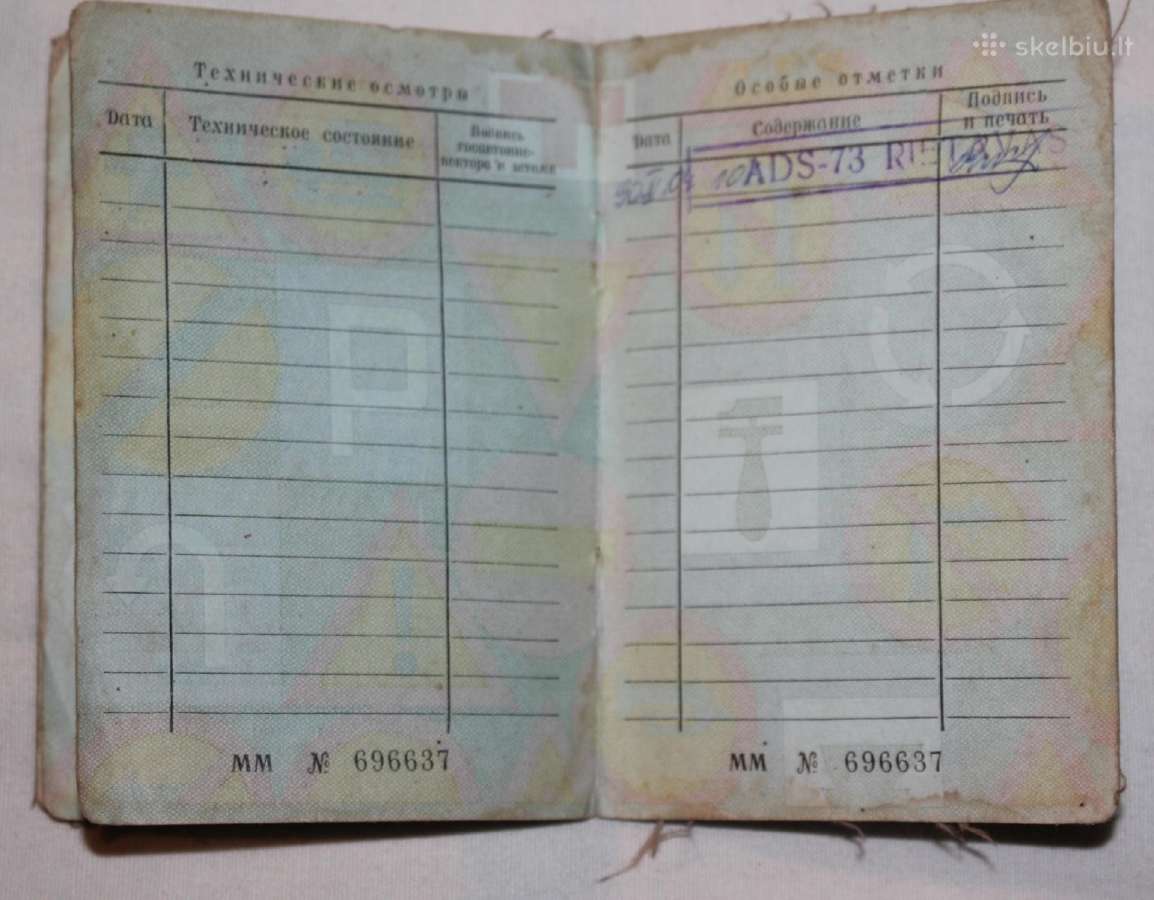 skelbiu.lt
Технические осмотры
Дата
Техническое состояние
Подпись
госавтоинс-
пектора и штамп
ММ № 696637
Особые отметки
Дата
Содержание
Подпись
и печать
ADS-73
ММ № 696637